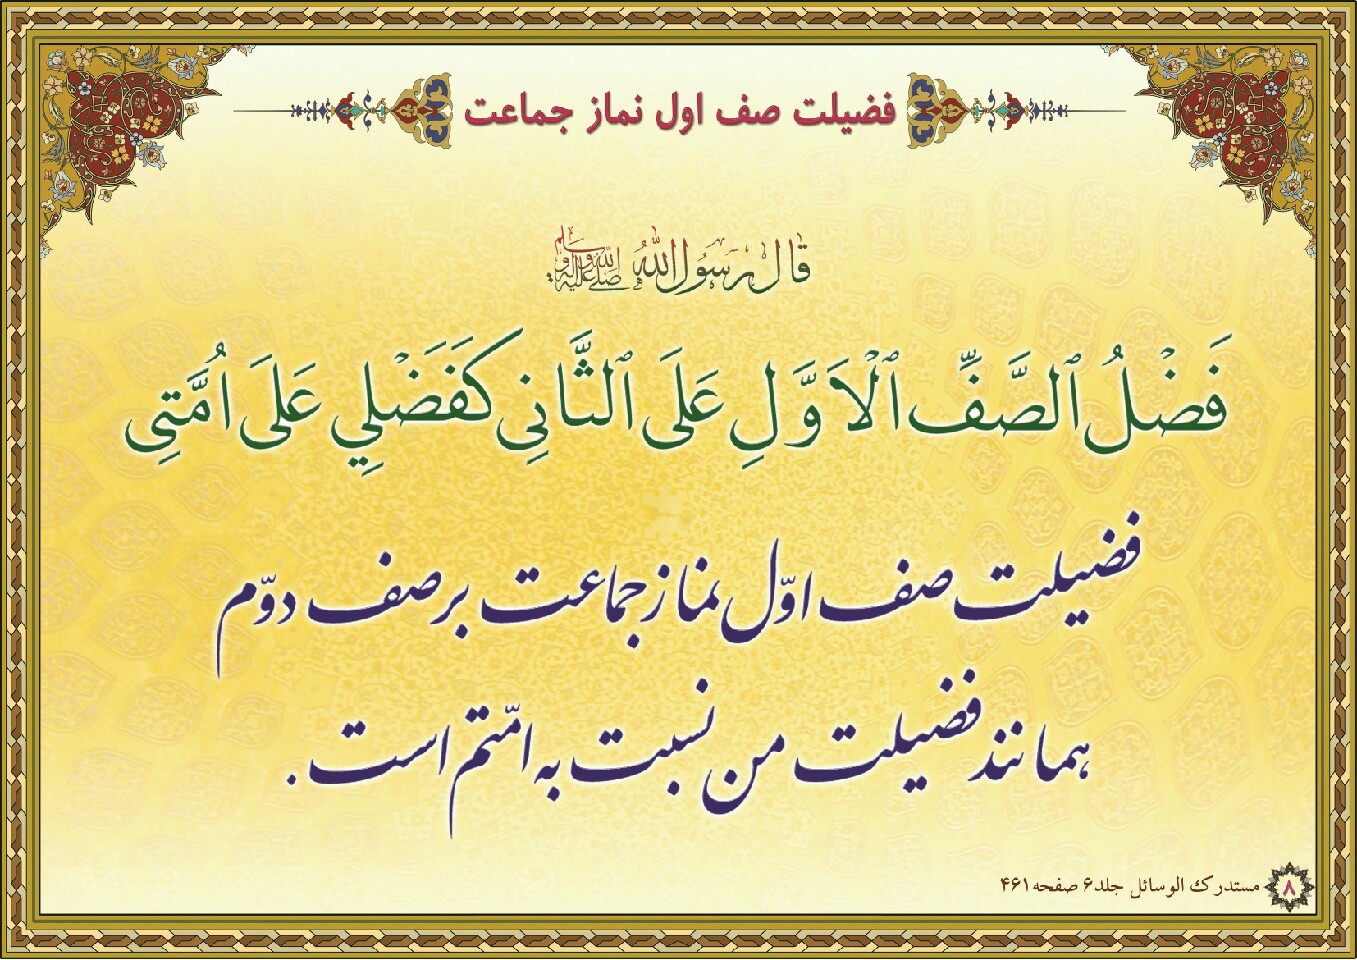 فضیلت صف اول نماز جماعت
قال رسول الله صلی الله علیه وآله وسلم
فَضْلُ ٱلصَّفِّ ٱلْاَوَّلِ عَلَى ٱلثَّانِي كَفَضْلِي عَلَى اُمَّتِي
فضیلت صف اوّل نماز جماعت بر صف دوّم
همانند فضیلت من نسبت به امّتم است.
مستدرک الوسائل جلد۶ صفحه۴۶۱
۸